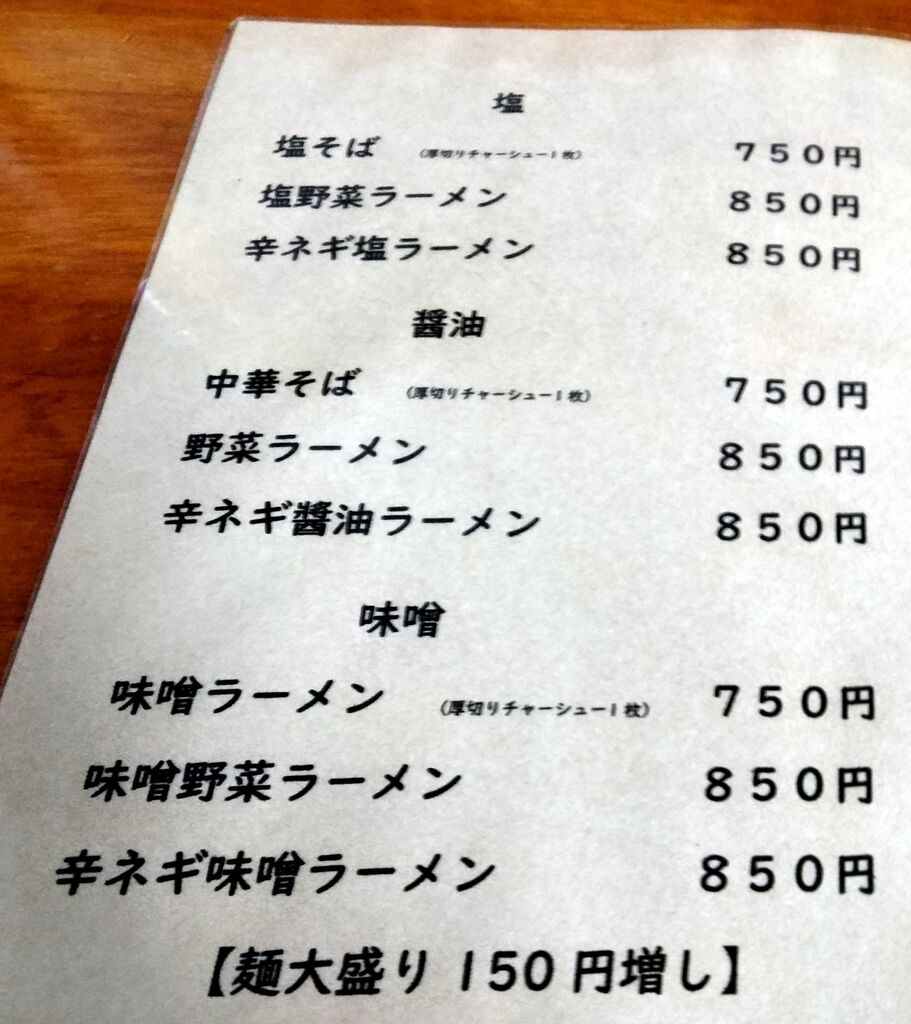 塩
塩そば (厚切りチャーシュー1枚) 750円
塩野菜ラーメン 850円
辛ネギ塩ラーメン 850円
醤油
中華そば (厚切りチャーシュー1枚) 750円
野菜ラーメン 850円
辛ネギ醬油ラーメン 850円
味噌
味噌ラーメン (厚切りチャーシュー1枚) 750円
味噌野菜ラーメン 850円
辛ネギ味噌ラーメン 850円
【麺大盛り150円増し】